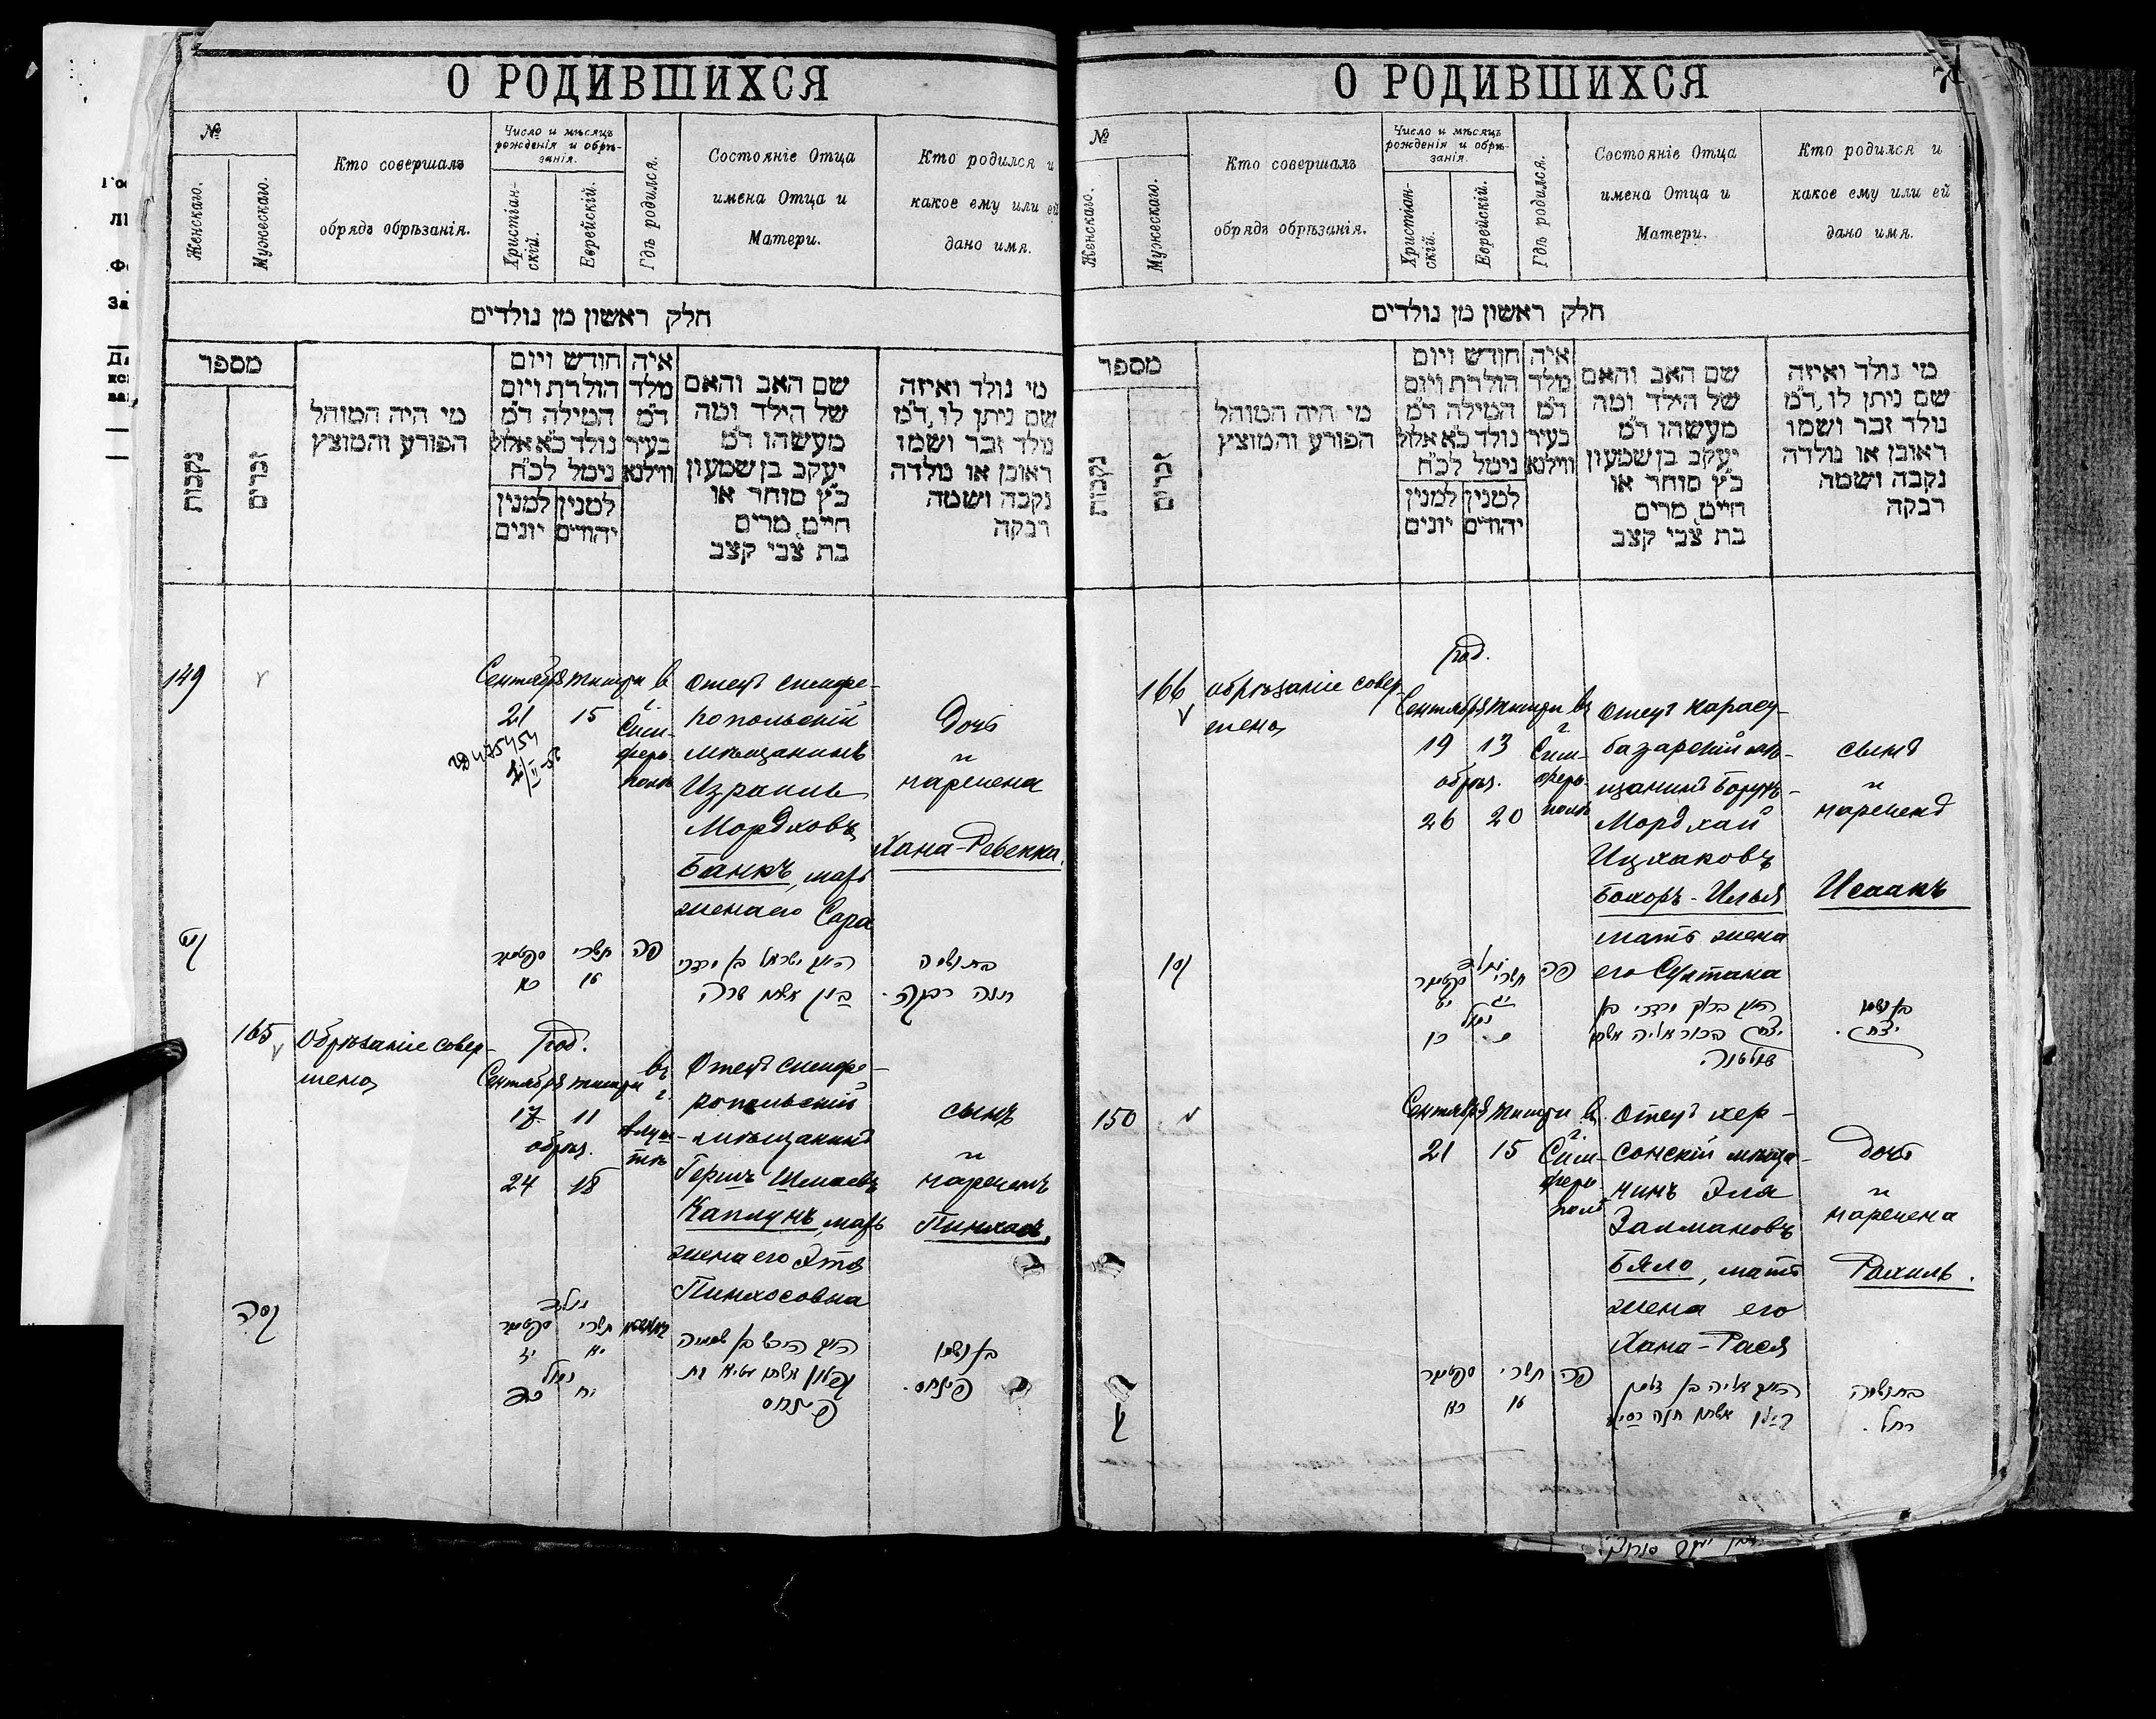 О РОДИВШИХСЯ
№
Женскаго.
Мужескаго.
Кто совершалъ
обрядъ обрѣзанія.
Число и мѣсяцъ
рожденія и обрѣ-
занія.
Христіан-
скій.
Еврейскій.
Гдѣ родился.
Состояніе Отца
имена Отца и
Матери.
Кто родился и
какое ему или ей
дано имя.
חלק ראשון מן נולדים
מספר
נקבות
זכרים
מי היה המוהל
הפורע והמוצץ
חודש ויום
הולדת ויום
המילה ד"מ
נולד כ"א אלול
נימל לכ"ח
למנין יהודים
למנין יונים
איה
מלד
ד"מ
בעיר
ווילנא
שם האב והאם
של הילד ומה
מעשהו ד"מ
יעקב בן שמעון
כ"ץ סוחר או
חייט מרים
בת צבי קצב
מי נולד ואיזה
שם ניתן לו ד"מ
נולד זכר ושמו
ראובן או נולדה
נקבה ושמה
רבקה
149
Сентября Тишри
21 15
в г.
Сим-
феро-
полѣ
Отецъ симфе-
ропольскій
мѣщанинъ
Израиль
Мордховъ
Банкъ, мать
жена его Сара
Дочь
и
наречена
Хана-Ревекка.
ספטמבר תשרי פה
כא טו
ישראל בן מרדכי
אשתו שרה
בת ושמה
חנה רבקה.
165
Обрѣзаніе совер-
шено
род.
Сентября Тишри
17 11
обрѣз.
24 18
въ г.
Алуш-
тѣ
Отецъ симфе-
ропольскій
мѣщанинъ
Гершъ Шмаевъ
Каплунъ, мать
жена его Этя
Пинхосовна
сынъ
и
нареченъ
Пинхасъ.
קסה
נולד
ספטמבר תשרי
יז יא
נמול
כד יח
הירש בן שמעיה
קפלון אשתו עטיא בת
פינחס
בן ושמו
פינחס.
О РОДИВШИХСЯ
71
№
Женскаго.
Мужескаго.
Кто совершалъ
обрядъ обрѣзанія.
Число и мѣсяцъ
рожденія и обрѣ-
занія.
Христіан-
скій.
Еврейскій.
Гдѣ родился.
Состояніе Отца
имена Отца и
Матери.
Кто родился и
какое ему или ей
дано имя.
חלק ראשון מן נולדים
מספר
נקבות
זכרים
מי היה המוהל
הפורע והמוצץ
חודש ויום
הולדת ויום
המילה ד"מ
נולד כ"א אלול
נימל לכ"ח
למנין יהודים
למנין יונים
איה
מלד
ד"מ
בעיר
ווילנא
שם האב והאם
של הילד ומה
מעשהו ד"מ
יעקב בן שמעון
כ"ץ סוחר או
חייט מרים
בת צבי קצב
מי נולד ואיזה
שם ניתן לו ד"מ
נולד זכר ושמו
ראובן או נולדה
נקבה ושמה
רבקה
166
обрѣзаніе совер-
шено
род.
Сентября Тишри
19 13
обрѣз.
26 20
въ г.
Сим-
феро-
полѣ
Отецъ карасу-
базарскій мѣ-
щанинъ Борухъ-
Мордхай
Ицхаковъ
Бохоръ-Илья
мать жена
его Султана
сынъ
и
нареченъ
Исаакъ
נולד
ספטמבר תשרי פה
יט יג
נמול
כו כ
ברוך מרדכי בן
יצחק בכור אליה אשתו
סולטנה.
בן ושמו
יצחק.
150
Сентября Тишри
21 15
в г.
Сим-
феро-
полѣ
Отецъ хер-
сонскій мѣща-
нинъ Эля
Залмановъ
Бяло, мать
жена его
Хана-Рася
дочь
и
наречена
Рахиль.
ספטמבר תשרי פה
כא טו
אליה בן זלמן
אשתו חנה רסיא
בת ושמה
רחל.